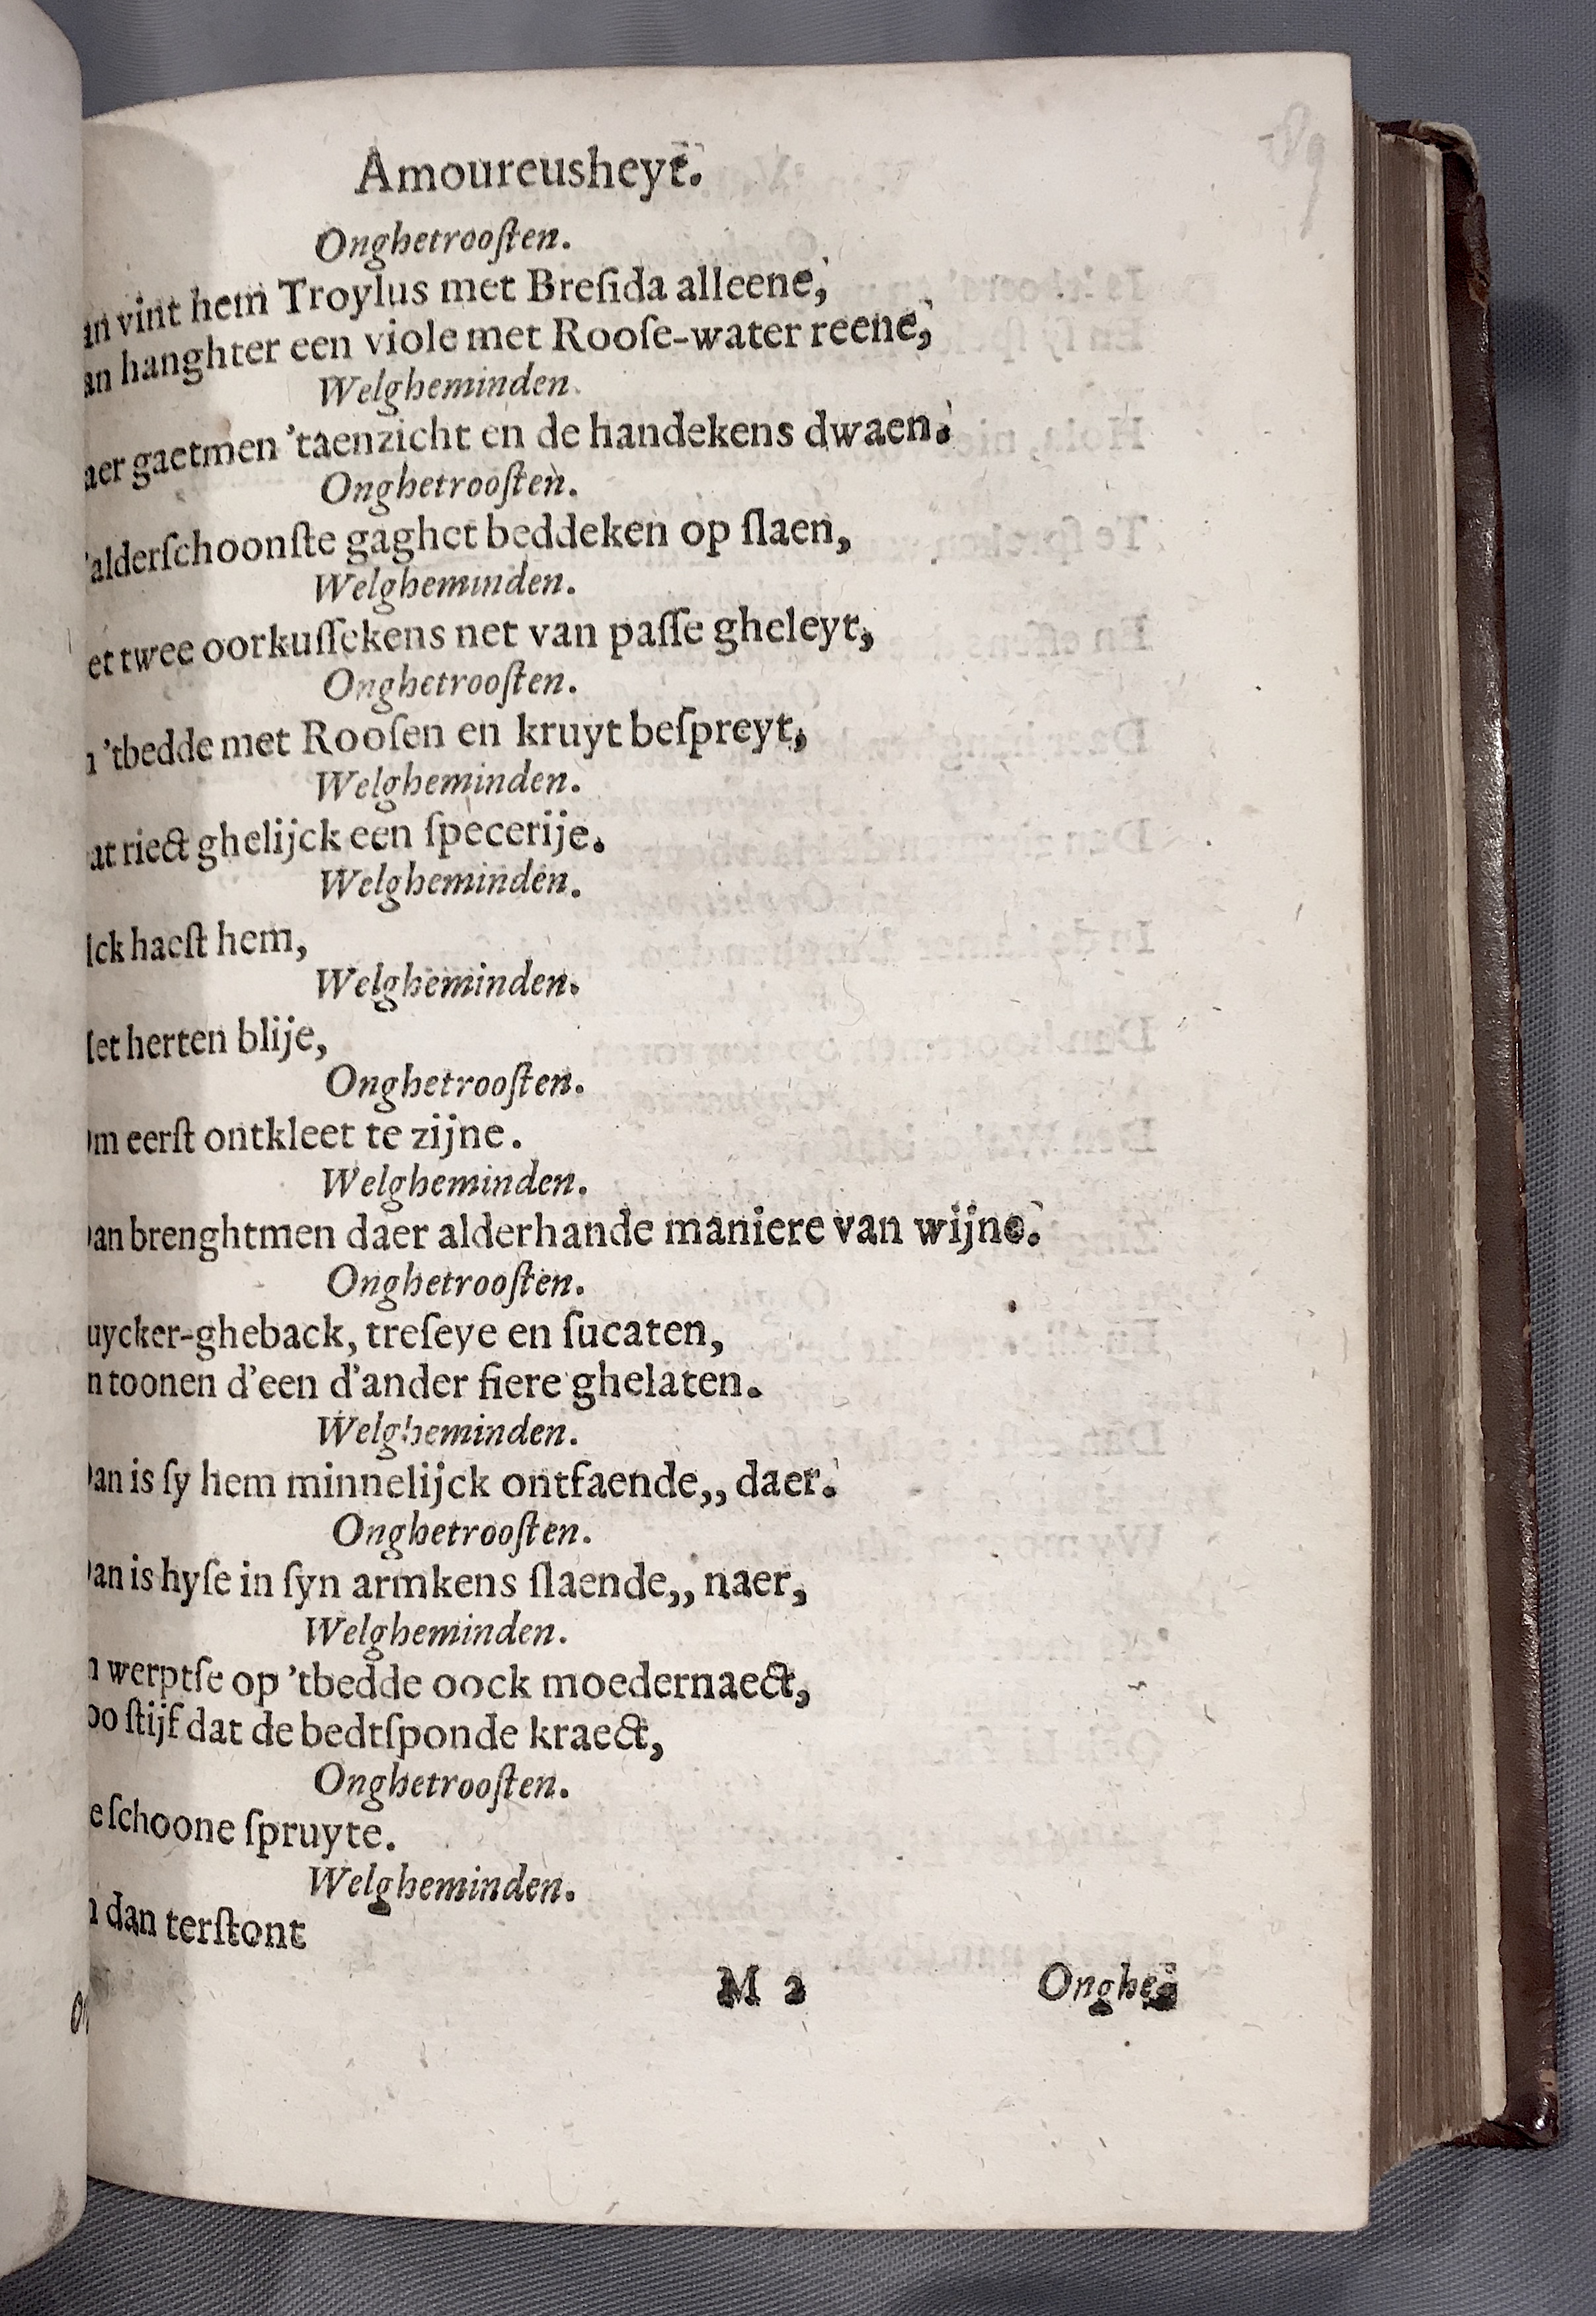 89
Amoureusheyt.
Onghetrooſten.
an vint hem Troylus met Breſida alleene,
an hanghter een viole met Rooſe-water reene,
Welgheminden.
aer gaetmen 'taenzicht en de handekens dwaen.
Onghetrooſten.
'alderſchoonſte gaghet beddeken op ſlaen,
Welgheminden.
et twee oorkuſſekens net van paſſe gheleyt,
Onghetrooſten.
n 'tbedde met Rooſen en kruyt beſpreyt,
Welgheminden.
at riect ghelijck een ſpecerije.
Welgheminden.
Ick haeſt hem,
Welgheminden.
let herten blije,
Onghetrooſten.
om eerſt ontkleet te zijne.
Welgheminden.
an brenghtmen daer alderhande maniere van wijne.
Onghetrooſten.
uycker-gheback, treſeye en ſucaten,
n toonen d'een d'ander fiere ghelaten.
Welgheminden.
an is ſy hem minnelijck ontfaende,, daer.
Onghetrooſten.
an is hyſe in ſyn armkens ſlaende,, naer,
Welgheminden.
n werptſe op 'tbedde oock moedernaect,
oo ſtijf dat de bedtſponde kraect,
Onghetrooſten.
e ſchoone ſpruyte.
Welgheminden.
n dan terſtont
M 2 Onghe-